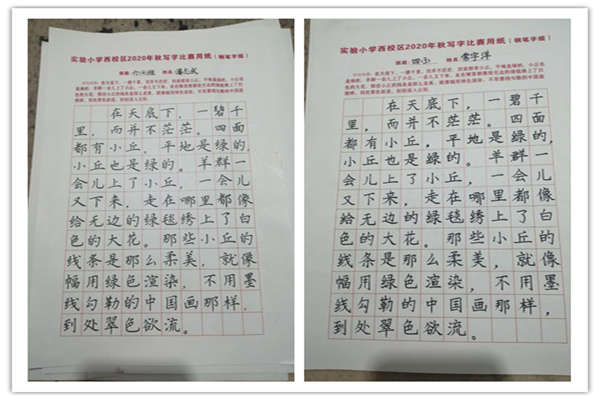 实验小学西校区2020年秋写字比赛用纸（钢笔字组）
班级：
姓名：
在天底下，一碧千
里，而并不茫茫。四面
都有小丘，平地是绿的，
小丘也是绿的。羊群一
会儿上了小丘，一会儿
又下来，走在哪里都像
给无边的绿毯绣上了白
色的大花。那些小丘的
线条是那么柔美，就像
幅用绿色渲染，不用墨
线勾勒的中国画那样，
到处翠色欲流。
实验小学西校区2020年秋写字比赛用纸（钢笔字组）
班级：
姓名：
在天底下，一碧千
里，而并不茫茫。四面
都有小丘，平地是绿的，
小丘也是绿的。羊群一
会儿上了小丘，一会儿
又下来，走在哪里都像
给无边的绿毯绣上了白
色的大花。那些小丘的
线条是那么柔美，就像
幅用绿色渲染，不用墨
线勾勒的中国画那样，
到处翠色欲流。